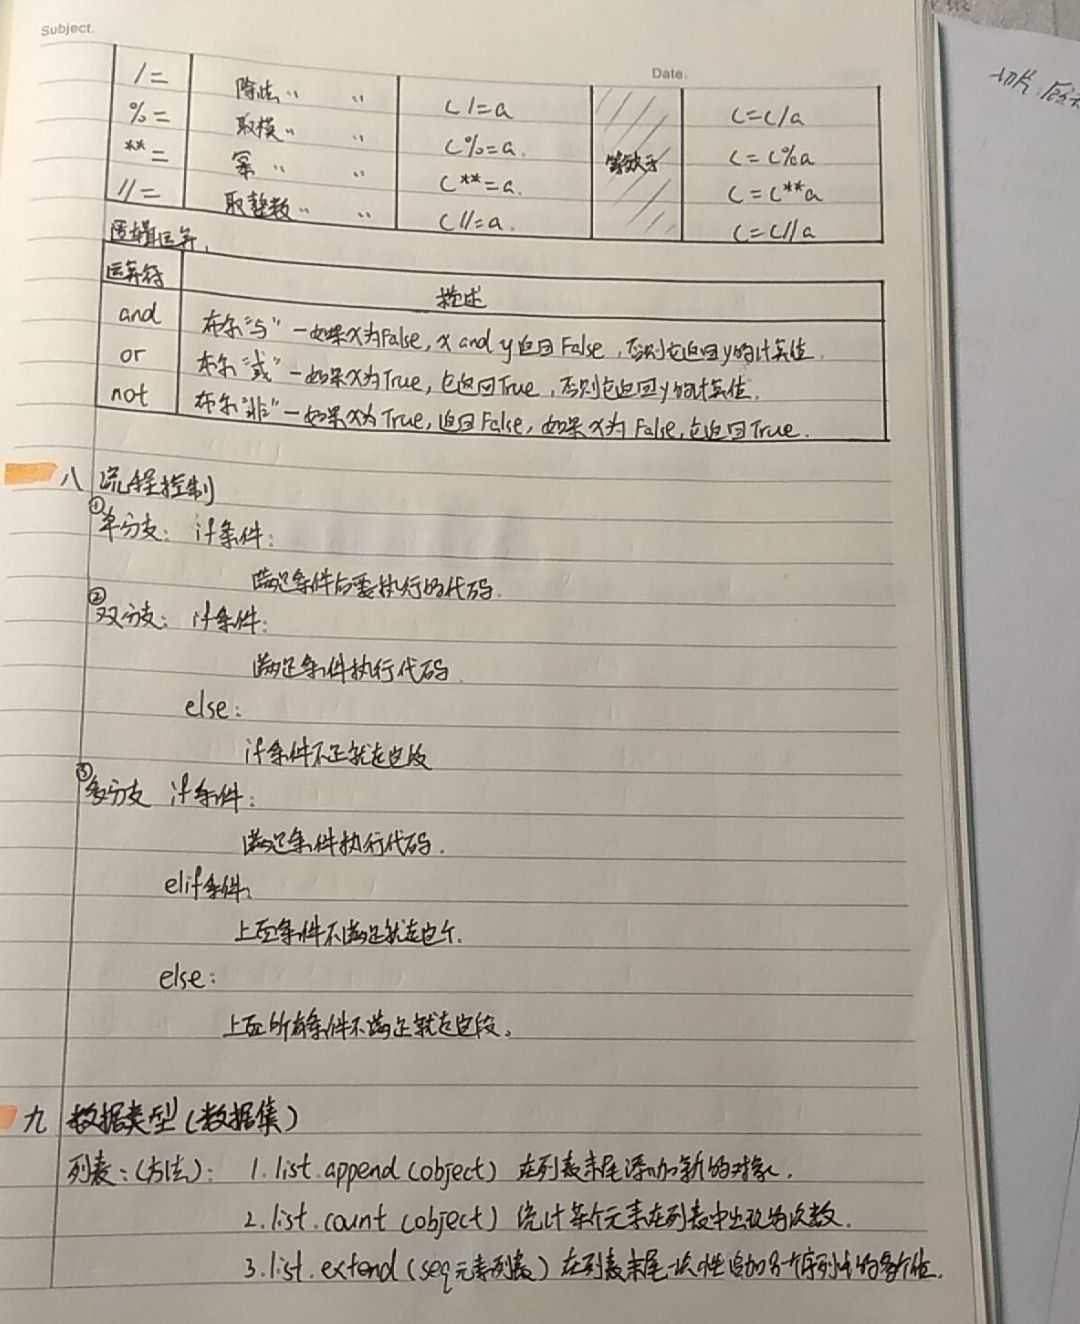 Subject.
Date.
/= 除法〃 〃 c/=a c=c/a
%= 取模〃 〃 c%=a. c=c%a
**= 幂〃 〃 c**=a. 等效于 c=c**a
//= 取整数〃 〃 c//=a. c=c//a
逻辑运算.
运算符 描述
and 布尔“与” —如果x为False, x and y返回False,否则它返回y的计算值.
or 布尔“或” —如果x为True,它返回True,否则它返回y的计算值.
not 布尔“非” —如果x为True,返回False,如果x为False,它返回True.
八 流程控制
①单分支: if条件:
满足条件后要执行的代码.
②双分支: if条件:
满足条件执行代码.
else:
if条件不足就走这段
③多分支 if条件:
满足条件执行代码.
elif条件:
上面条件不满足就走这个.
else:
上面所有条件不满足就走这段。
九 数据类型(数据集)
列表:(方法): 1. list.append(object) 在列表末尾添加新的对象.
2. list.count(object) 统计某个元素在列表中出现的次数.
3. list.extend(seq元素列表) 在列表末尾一次性追加另一个序列中的多个值.
切片